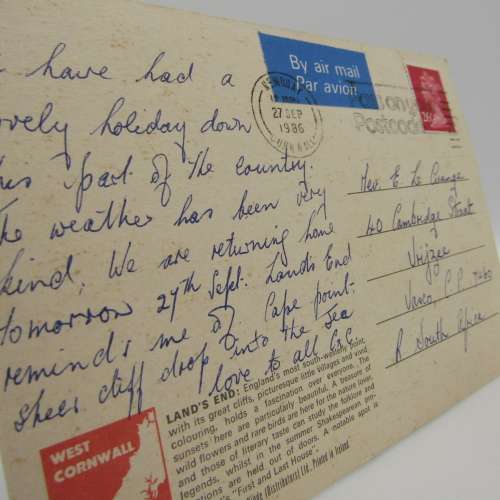 have had a
lovely holiday down
this part of the country.
The weather has been very
kind. We are returning home
tomorrow 27th Sept. Land's End
reminds me of Cape point.
Sheer cliff drop into the sea
love to all
By air mail
Par avion
27 SEP
1986
CORNWALL
Postcode
Rev. E
40 Cambridge Street
Vrijzee
Vasco, C.P. 7460
R South Africa
WEST
CORNWALL
LAND'S END: England's most south-westerly point,
with its great cliffs, picturesque little villages and vivid
colouring, holds a fascination over everyone. The
sunsets here are particularly beautiful. A treasure of
wild flowers and rare birds are here for the nature lover,
and those of literary taste can study the folklore and
legends, whilst in the summer Shakespearean
are held out of doors. A notable spot is
"First and Last House".
(Distributors) Ltd. Printed in Ireland.